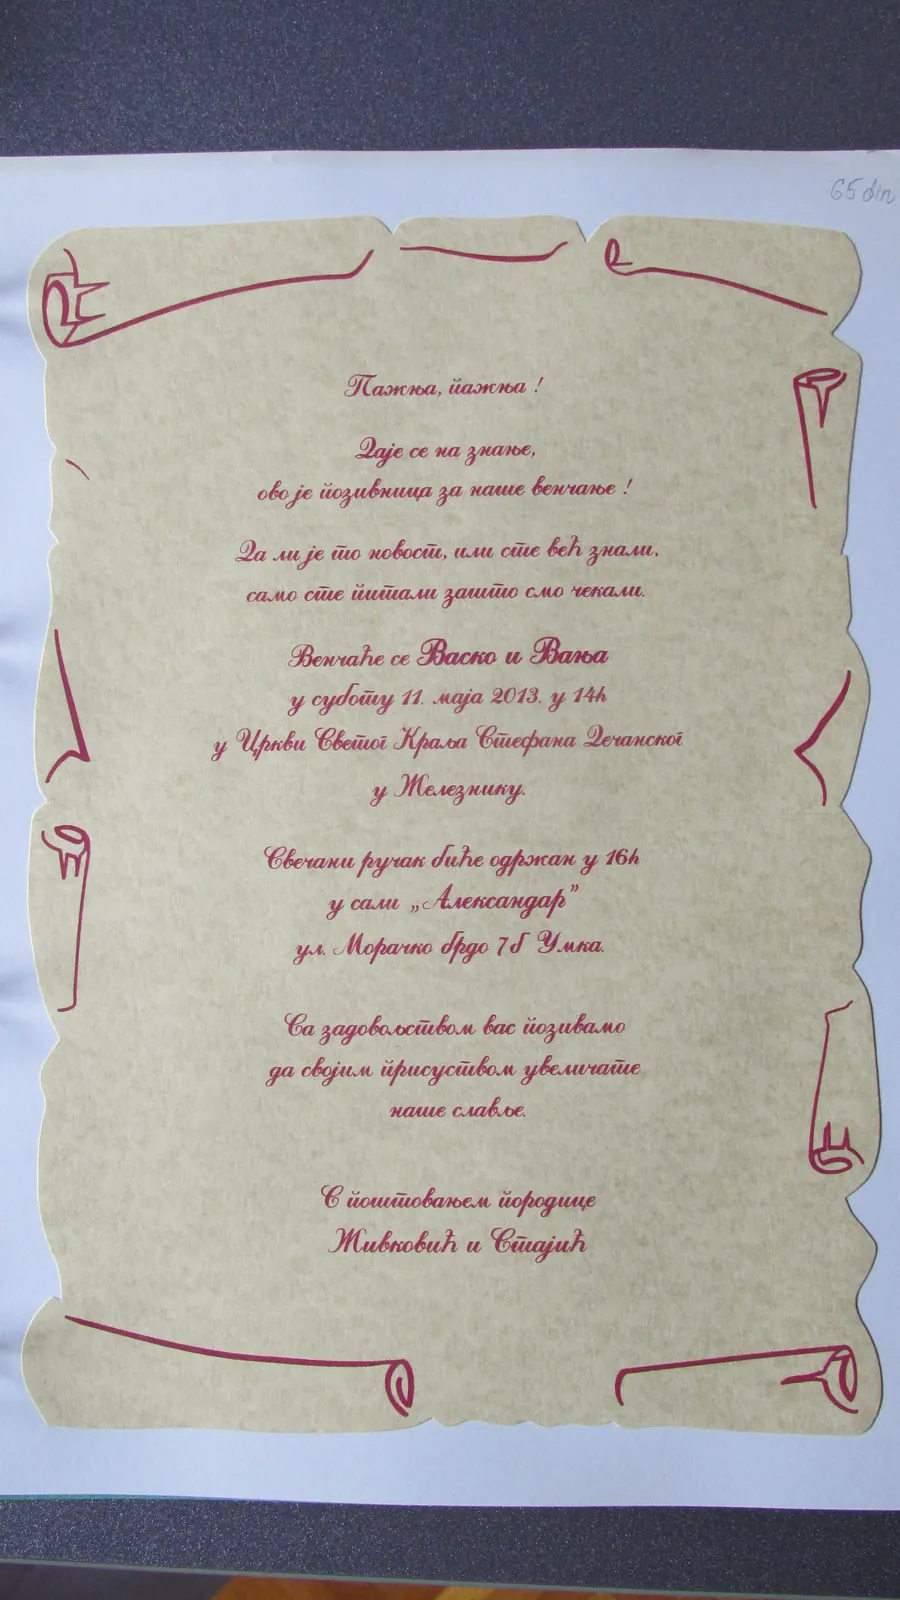 65 din
Пажња, пажња !
Даје се на знање,
ово је позивница за наше венчање !
Да ли је то новост, или сте већ знали,
само сте питали зашто смо чекали.
Венчаће се Васко и Вања
у суботу 11. маја 2013. у 14h
у Цркви Светог Краља Стефана Дечанског
у Железнику.
Свечани ручак биће одржан у 16h
у сали „Александар”
ул. Морачко брдо 7б Умка.
Са задовољством вас позивамо
да својим присуством увеличате
наше славље.
С поштовањем породице
Живковић и Стајић